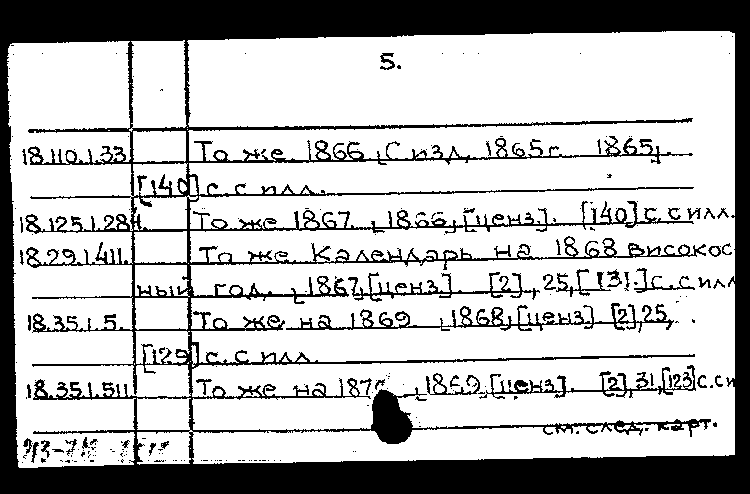 5.
18.110.1.33. То же 1866 [С изд. 1865 г. 1865].
[140] с. с илл.
18.125.1.284. То же 1867. [1866], [ценз]. [140] с. с илл.
18.29.1.411. То же Календарь на 1868 високос
ный год. [1867, [ценз]. [2], 25, [131] с. с илл
18.35.1.5. То же на 1869. [1868], [ценз]. [2], 25,
[129] с. с илл.
18.35.1.511 То же на [1869, [ценз]. [2], 31, [123] с. с и
см. след. карт.